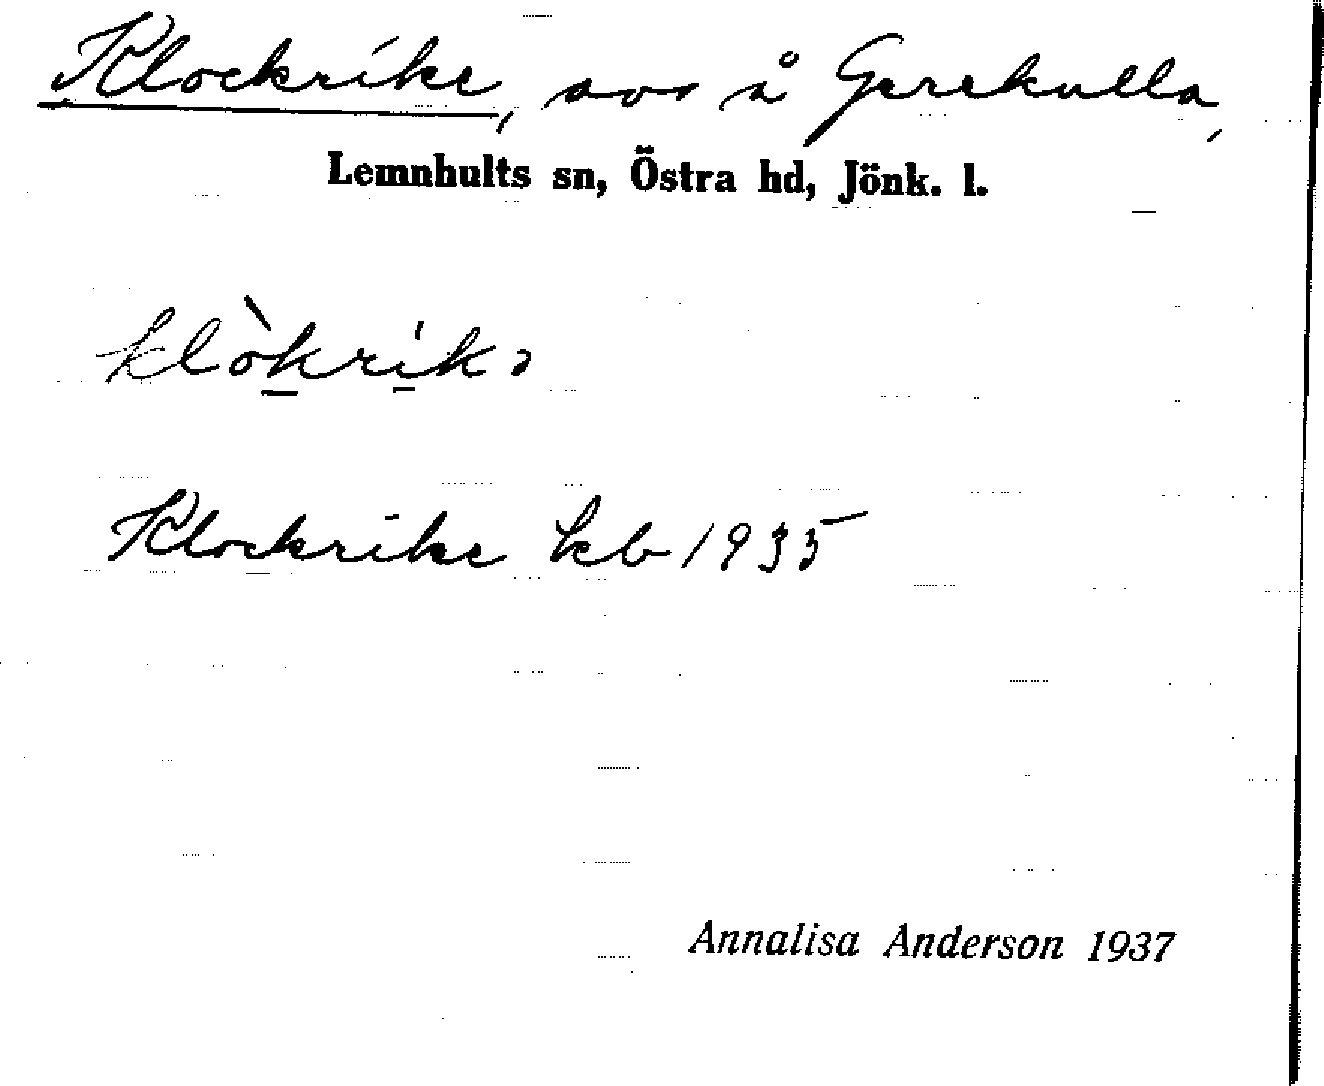 Klockrike, avs å Gerekulla,
Lemnhults sn, Östra hd, Jönk. l.
klòkrikə
Klockrike kb 1935
Annalisa Anderson 1937